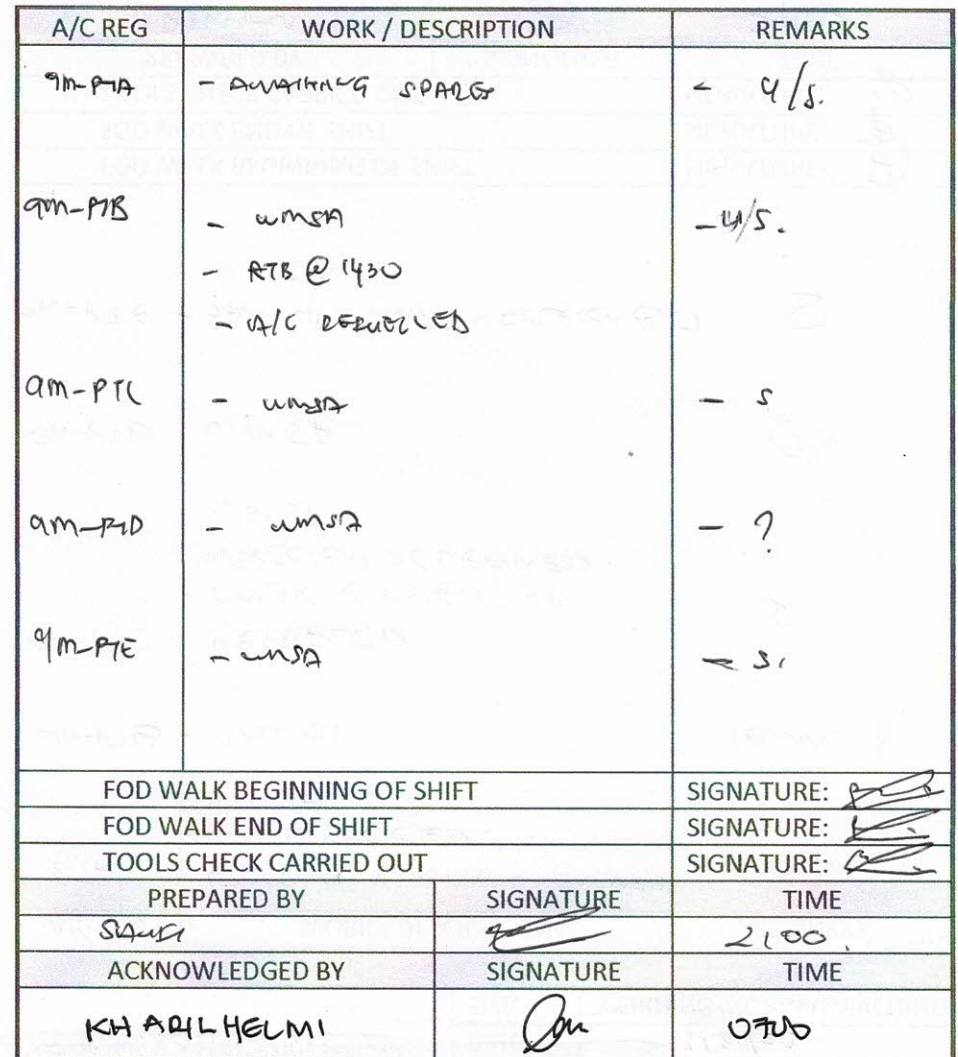 A/C REG WORK / DESCRIPTION REMARKS
9M-PTA - AWAITING SPARES - U/S.
9M-PTB - WMSA - U/S.
- RTB @ 1430
- A/C REFUELLED
9M-PTC - WMSA - S
9M-PTD - WMSA - ?
9M-PTE - WMSA - S.
FOD WALK BEGINNING OF SHIFT SIGNATURE:
FOD WALK END OF SHIFT SIGNATURE:
TOOLS CHECK CARRIED OUT SIGNATURE:
PREPARED BY SIGNATURE TIME
2100.
ACKNOWLEDGED BY SIGNATURE TIME
KHADILHELMI